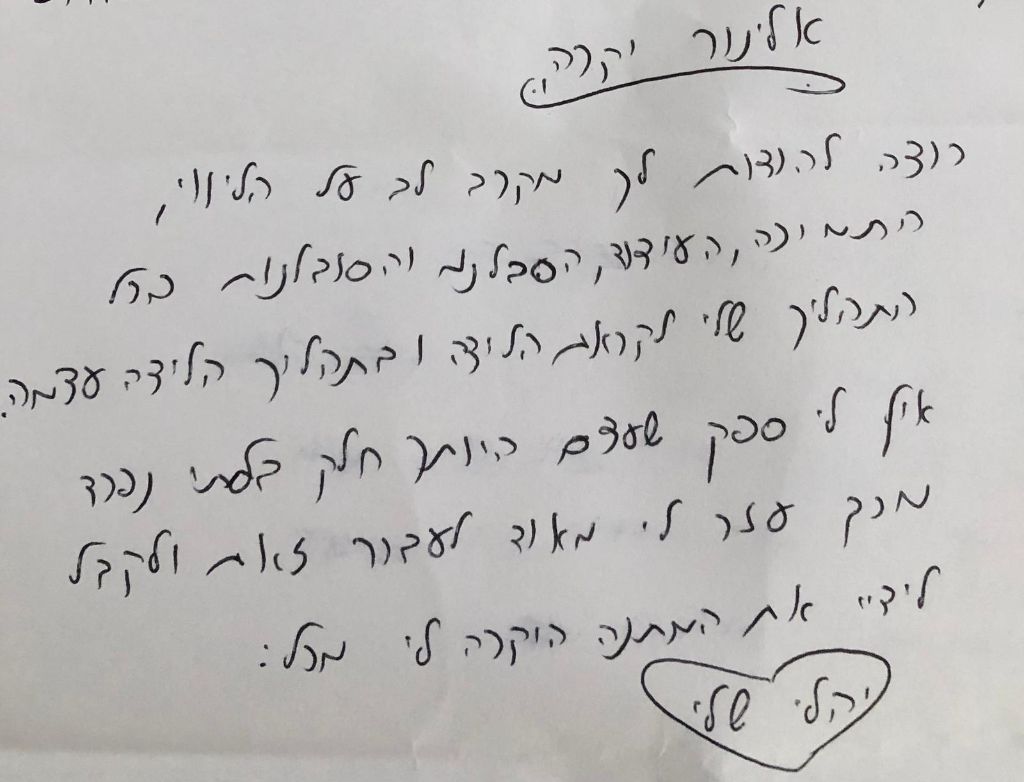 אלינור יקרה,
רוצה להודות לך מקרב לב על הליווי,
התמיכה, העידוד, הסבלנות והסובלנות בכל
התהליך שלי לקראת הלידה ובתהליך הלידה עצמה.
אין לי ספק שעצם היותך חלק בלתי נפרד
מכך עזר לי מאוד לעבור זאת ולקבל
לידיי את המתנה היקרה לי מכל:
יהלי שלי